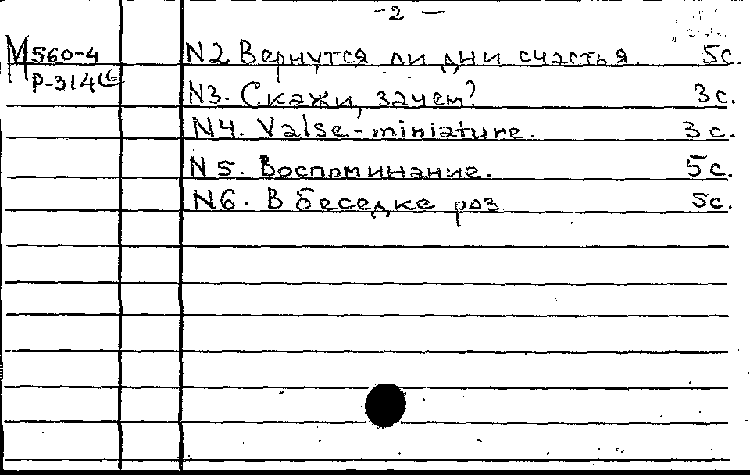 -2-
М560-4 N2 Вернутся ли дни счастья. 5с.
Р-314(6) N3. Скажи, зачем? 3с.
N4. Valse-miniature. 3с.
N5. Воспоминание. 5с.
N6. В беседке роз 5с.